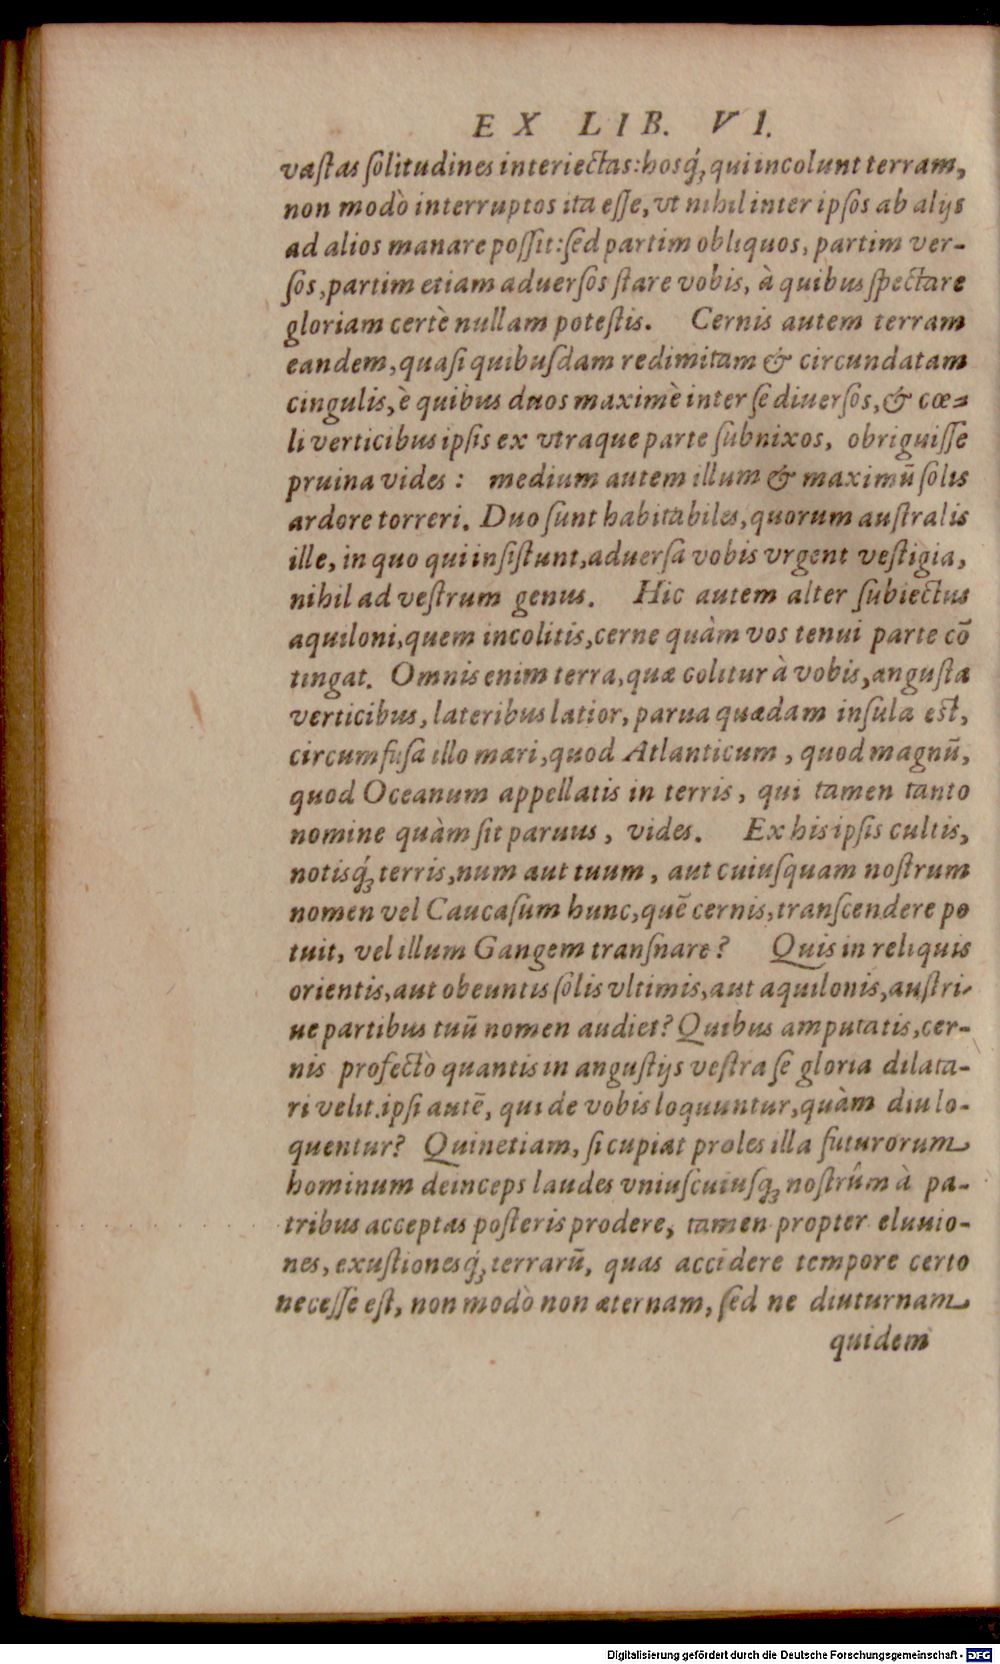 EX LIB. VI.
vaſtas ſolitudines interiectas: hosq́ꝫ qui incolunt terram,
non modò interruptos ita eſſe, vt nihil inter ipſos ab alijs
ad alios manare poſſit: ſed partim obliquos, partim ver-
ſos, partim etiam aduerſos ſtare vobis, à quibus ſpectare
gloriam certè nullam poteſtis. Cernis autem terram
eandem, quaſi quibuſdam redimitam & circundatam
cingulis, è quibus duos maximè inter ſe diuerſos, & cœ-
li verticibus ipſis ex vtraque parte ſubnixos, obriguiſſe
pruina vides: medium autem illum & maximũ ſolis
ardore torreri. Duo ſunt habitabiles, quorum auſtralis
ille, in quo qui inſiſtunt, aduerſa vobis vrgent veſtigia,
nihil ad veſtrum genus. Hic autem alter ſubiectus
aquiloni, quem incolitis, cerne quàm vos tenui parte cõ
tingat. Omnis enim terra, quæ colitur à vobis, anguſta
verticibus, lateribus latior, parua quædam inſula eſt,
circumfuſa illo mari, quod Atlanticum, quod magnũ,
quod Oceanum appellatis in terris, qui tamen tanto
nomine quàm ſit paruus, vides. Ex his ipſis cultis,
notisq́ꝫ terris, num aut tuum, aut cuiuſquam noſtrum
nomen vel Caucaſum hunc, quẽ cernis, tranſcendere po
tuit, vel illum Gangem tranſnare? Quis in reliquis
orientis, aut obeuntis ſolis vltimis, aut aquilonis, auſtri-
ue partibus tuũ nomen audiet? Quibus amputatis, cer-
nis profectò quantis in anguſtijs veſtra ſe gloria dilata-
ri velit. ipſi autẽ, qui de vobis loquuntur, quàm diu lo-
quentur? Quinetiam, ſi cupiat proles illa futurorum
hominum deinceps laudes vniuſcuiuſq́ꝫ noſtrûm à pa-
tribus acceptas poſteris prodere, tamen propter eluuio-
nes, exuſtionesq́ꝫ terrarũ, quas accidere tempore certo
neceſſe eſt, non modò non æternam, ſed ne diuturnam
quidem
Digitalisierung gefördert durch die Deutsche Forschungsgemeinschaft - DFG